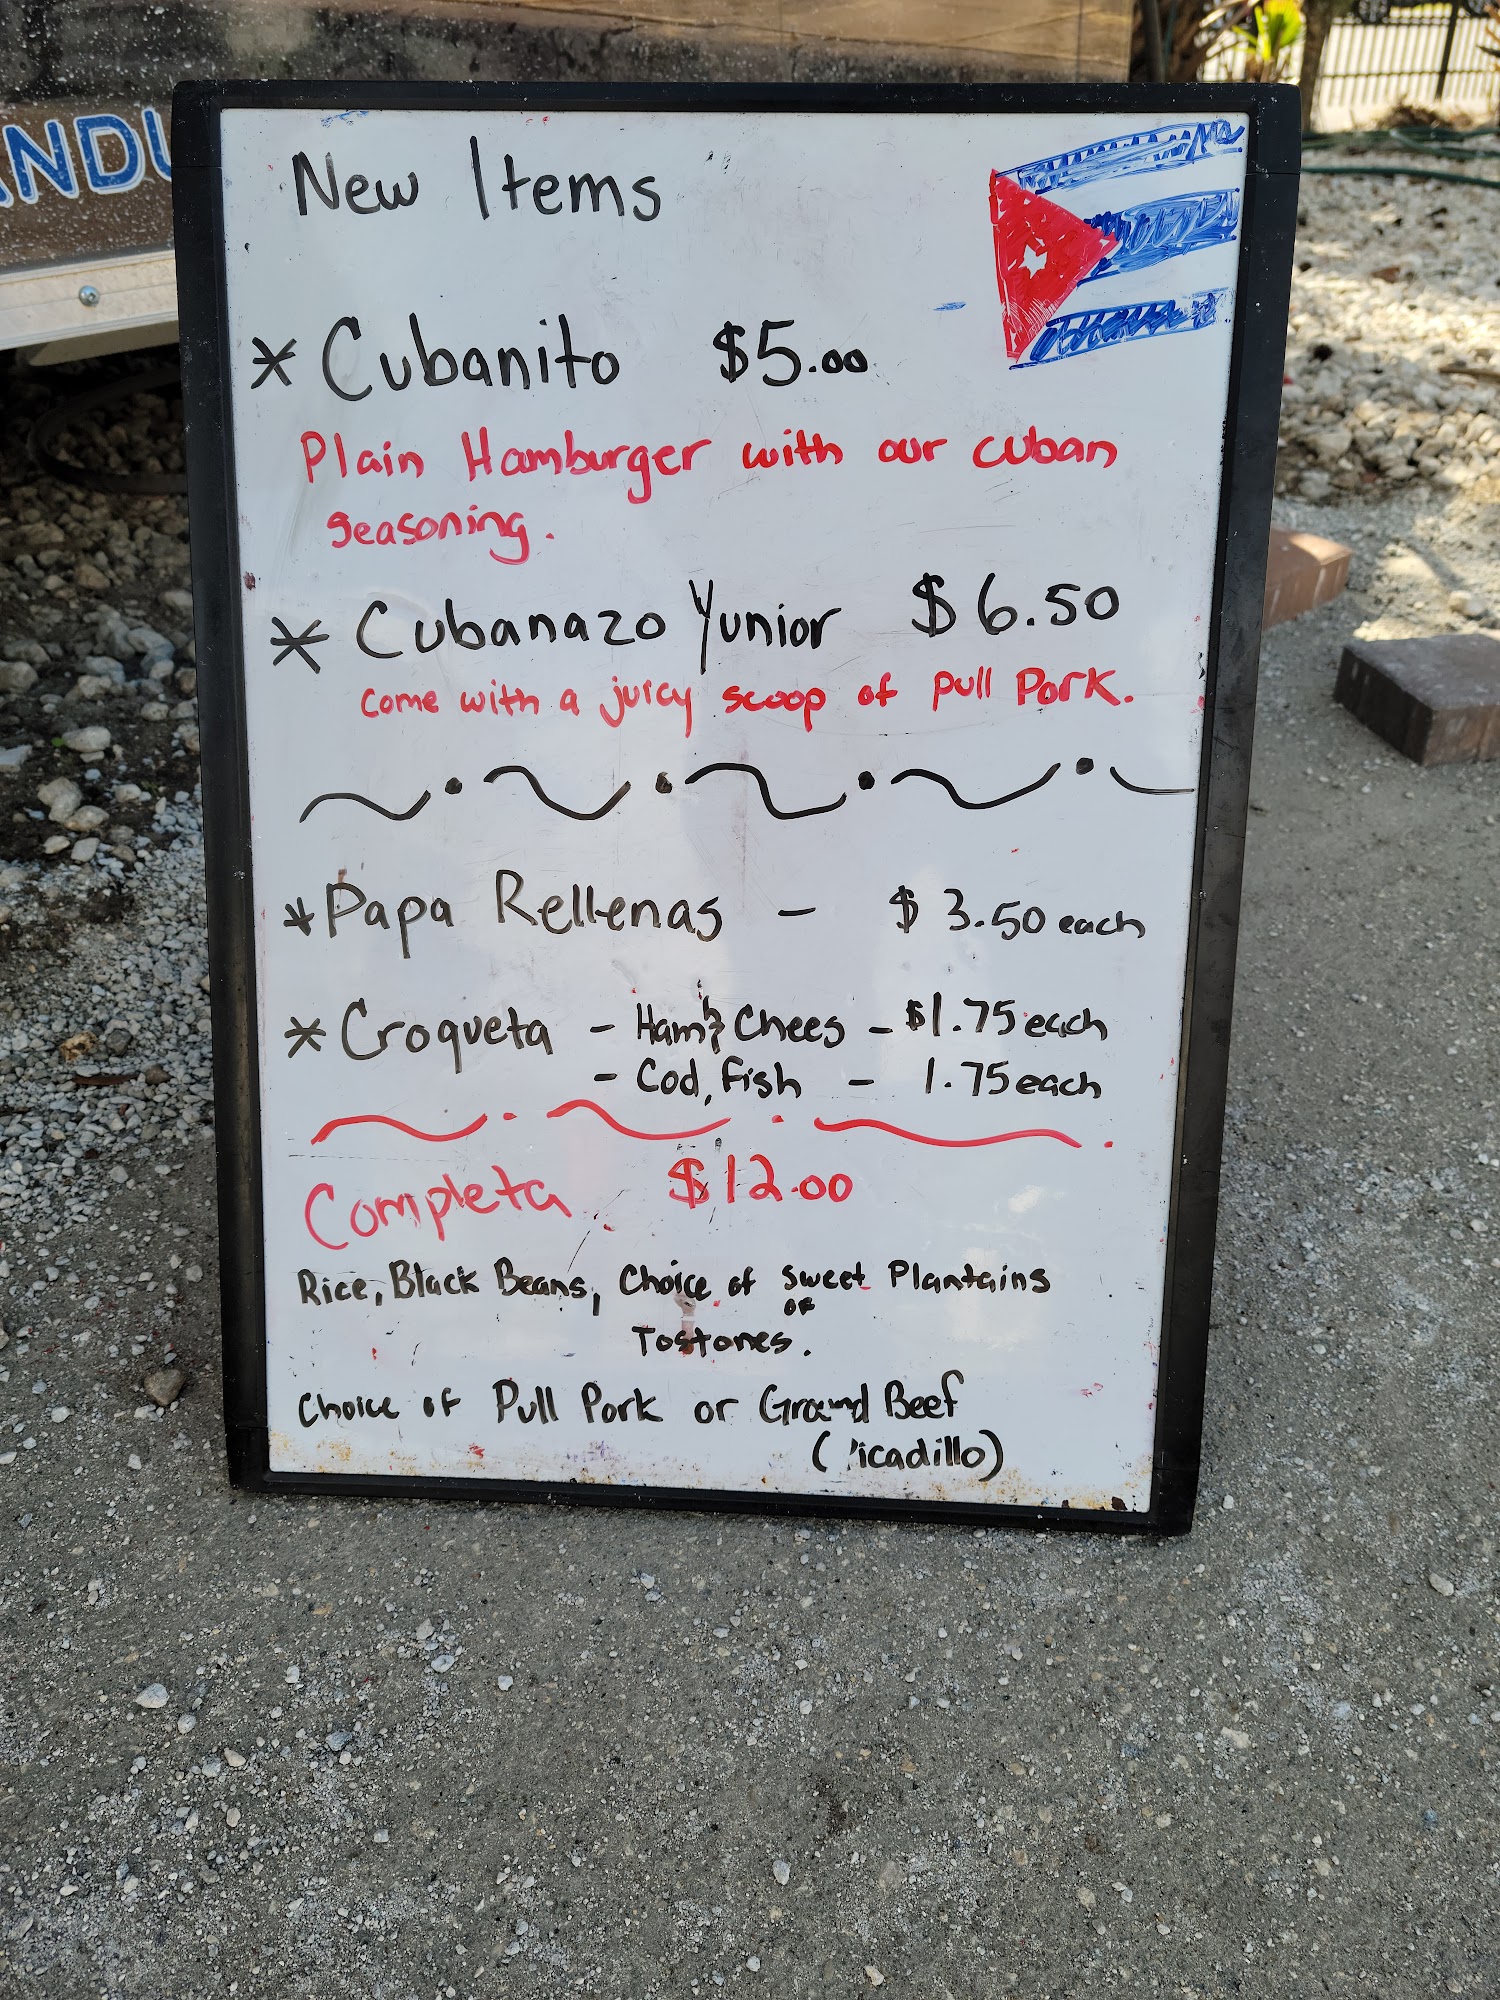 ANDU
New Items
* Cubanito $5.00
Plain Hamburger with our cuban
seasoning.
* Cubanazo Yunior $6.50
come with a juicy scoop of pull Pork.
* Papa Rellenas - $3.50 each
* Croqueta - Ham & Chees - $1.75 each
- Cod, Fish - 1.75 each
Completa $12.00
Rice, Black Beans, Choice of Sweet Plantains
or
Tostones.
Choice of Pull Pork or Ground Beef
(Picadillo)